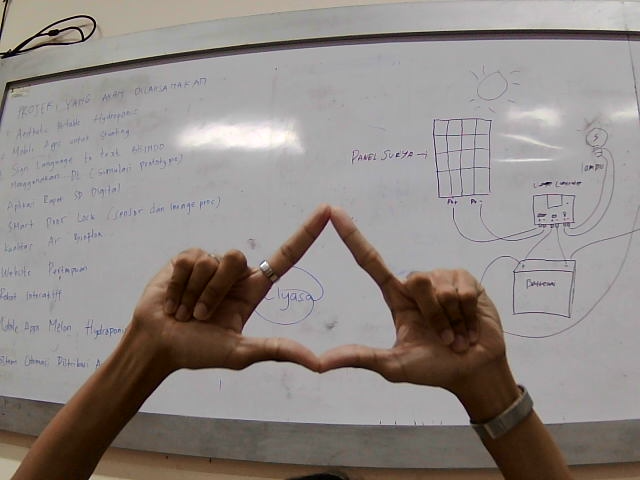 PROJEK YANG AKAN DILAKSANAKAN
Aesthetic Portable Hydroponic
Mobile Apps untuk Stunting
Sign Language to text BISINDO
Menggunakan DL (Simulasi prototype)
Aplikasi Rapor SD Digital
Smart Door Lock (sensor dan image proc)
Kualitas Air Bioflok
Website
Robot Interaktif
Mobile Apps Melon Hydroponi
Distribusi A
PANEL SURYA
P+ P-
LAMPU
Baterai
Ilyasa